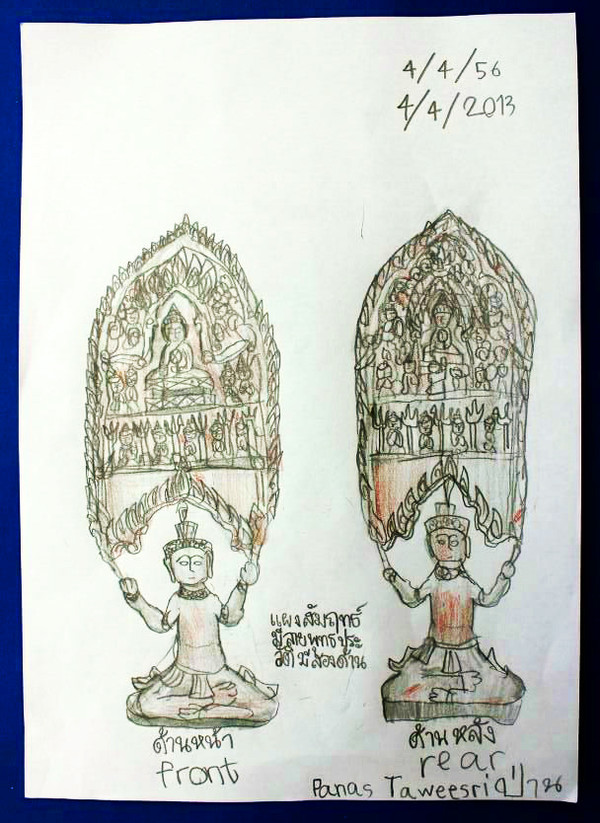 4/4/56
4/4/2013
แผงสัมฤทธิ์
มีลายพุทธประ
วัติ มีสองด้าน
ด้านหน้า
front
ด้านหลัง
rear
Panas Taweesri